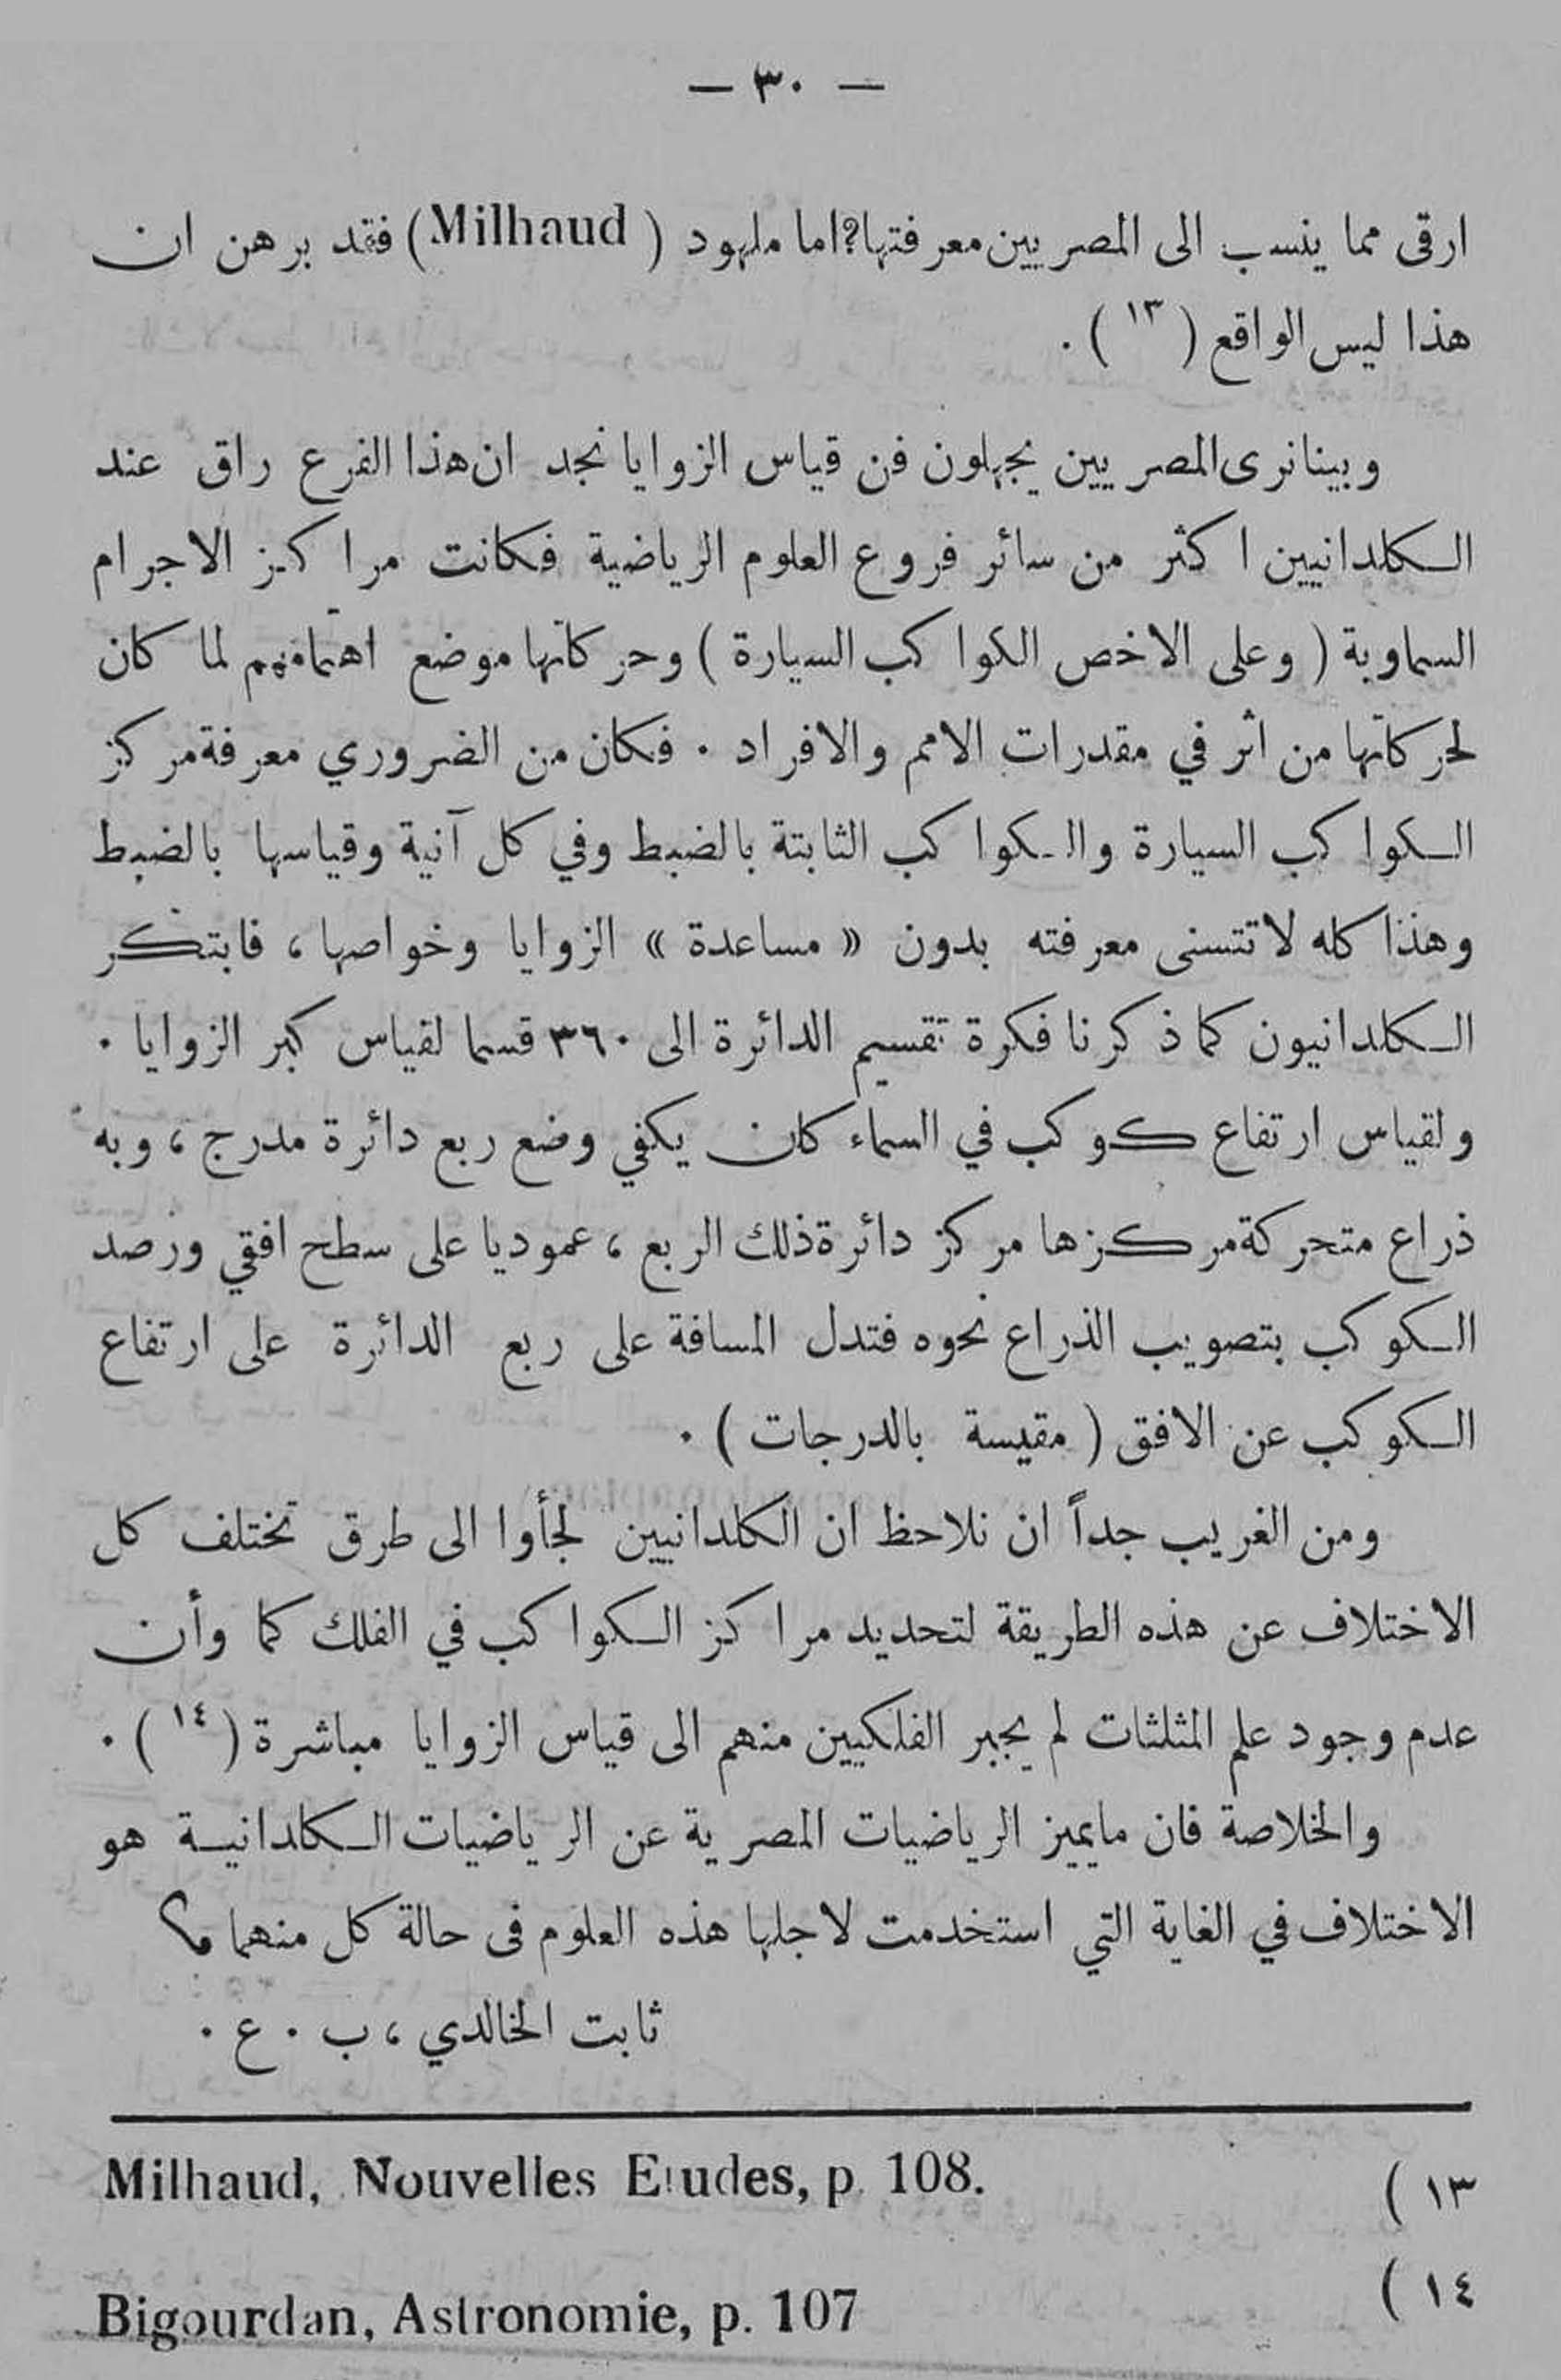 — ٣٠ —
ارقى مما ينسب الى المصريين معرفتها؟ اما ملهود ( Milhaud ) فقد برهن ان
هذا ليس الواقع ( ١٣ ) .
وبينا نرى المصريين يجهلون فن قياس الزوايا نجد ان هذا الفرع راق عند
الكلدانيين اكثر من سائر فروع العلوم الرياضية فكانت مراكز الاجرام
السماوية ( وعلى الاخص الكواكب السيارة ) وحركاتها موضع اهتمامهم لما كان
لحركاتها من اثر في مقدرات الامم والافراد . فكان من الضروري معرفة مركز
الكواكب السيارة والكواكب الثابتة بالضبط وفي كل آنية وقياسها بالضبط
وهذا كله لا تتسنى معرفته بدون « مساعدة » الزوايا وخواصها ، فابتكر
الكلدانيون كما ذكرنا فكرة تقسيم الدائرة الى ٣٦٠ قسما لقياس كبر الزوايا .
ولقياس ارتفاع كوكب في السماء كان يكفي وضع ربع دائرة مدرج ، وبه
ذراع متحركة مركزها مركز دائرة ذلك الربع ، عموديا على سطح افقي ورصد
الكوكب بتصويب الذراع نحوه فتدل المسافة على ربع الدائرة على ارتفاع
الكوكب عن الافق ( مقيسة بالدرجات ) .
ومن الغريب جداً ان نلاحظ ان الكلدانيين لجأوا الى طرق تختلف كل
الاختلاف عن هذه الطريقة لتحديد مراكز الكواكب في الفلك كما وأن
عدم وجود علم المثلثات لم يجبر الفلكيين منهم الى قياس الزوايا مباشرة ( ١٤ ) .
والخلاصة فان مايميز الرياضيات المصرية عن الرياضيات الكلدانية هو
الاختلاف في الغاية التي استخدمت لاجلها هذه العلوم فى حالة كل منهما
ثابت الخالدي ، ب . ع .
١٣ ) Milhaud, Nouvelles Etudes, p. 108.
١٤ ) Bigourdan, Astronomie, p. 107